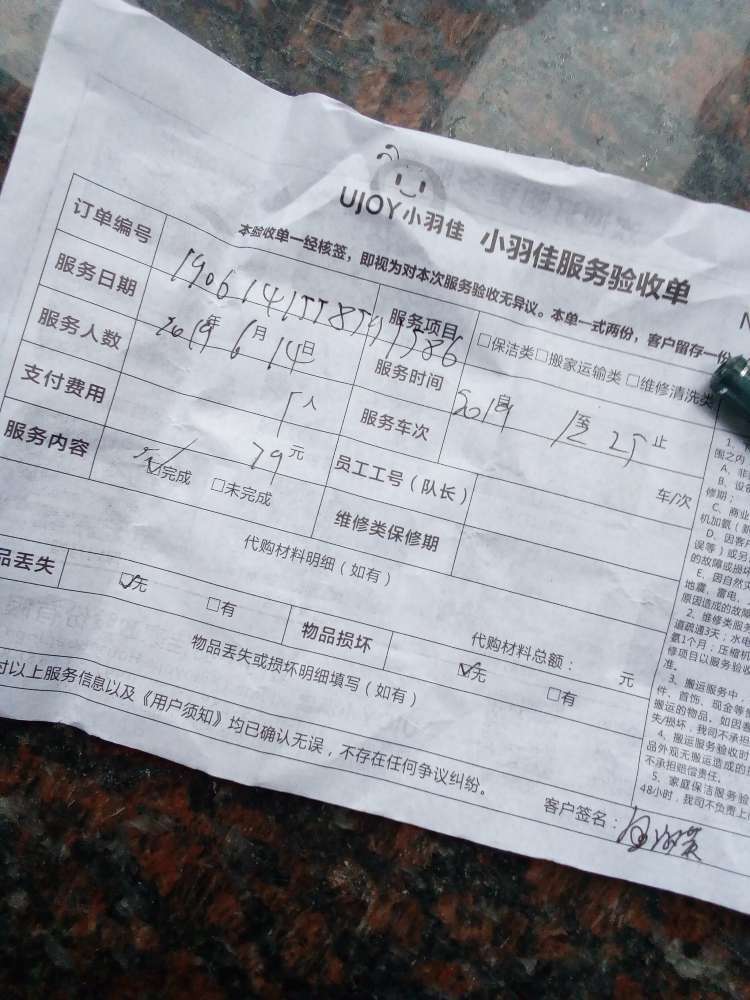 UJOY小羽佳 小羽佳服务验收单
本验收单一经核签，即视为对本次服务验收无异议。本单一式两份，客户留存一份
N
订单编号
服务项目 □保洁类□搬家运输类 □维修清洗类
服务日期 2019年6月14日
服务时间 自 至 止
服务人数 1人
服务车次 车/次
支付费用 79元
员工工号（队长）
服务内容 ☑完成 □未完成
维修类保修期
代购材料明细（如有）
代购材料总额： 元
品丢失 ☑无 □有 物品损坏 ☑无 □有
物品丢失或损坏明细填写（如有）
对以上服务信息以及《用户须知》均已确认无误，不存在任何争议纠纷。
客户签名：
围之内
A、非
B、设备
修期；
C、商业
机加氨（
D、因客户
误等）或另
的故障或损坏
E、因自然灾
地震、雷电、
原因造成的故障
2、维修类服务
道疏通3天；水电
氨1个月；压缩机
修项目以服务验收
准。
3、搬运服务中，
件、首饰、现金等
搬运的物品。如因客
失/损坏，我司不承担
4、搬运服务验收时
品外观无搬运造成的
不承担赔偿责任。
5、家庭保洁服务验
48小时，我司不负责上